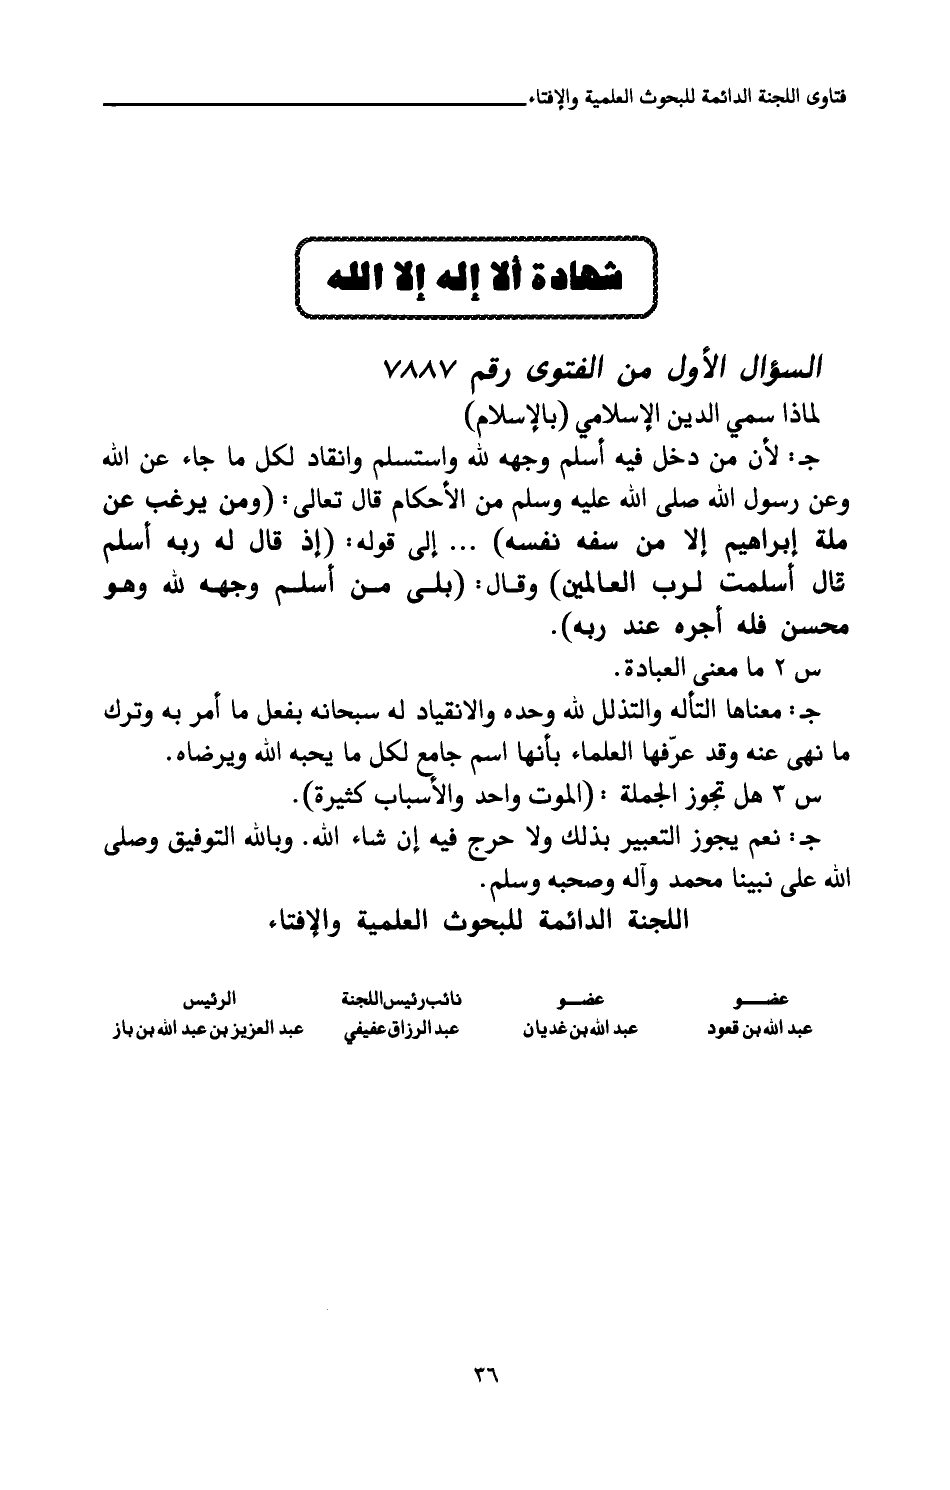 فتاوى اللجنة الدائمة للبحوث العلمية والإفتاء
شهادة ألا إله إلا الله
السؤال الأول من الفتوى رقم ٧٨٨٧
لماذا سمي الدين الإسلامي (بالإسلام)
جـ: لأن من دخل فيه أسلم وجهه لله واستسلم وانقاد لكل ما جاء عن الله
وعن رسول الله صلى الله عليه وسلم من الأحكام قال تعالى: (ومن يرغب عن
ملة إبراهيم إلا من سفه نفسه) ... إلى قوله: (إذ قال له ربه أسلم
قال أسلمت لرب العالمين) وقال: (بلى من أسلم وجهه لله وهو
محسن فله أجره عند ربه).
س ٢ ما معنى العبادة.
جـ: معناها التأله والتذلل لله وحده والانقياد له سبحانه بفعل ما أمر به وترك
ما نهى عنه وقد عرّفها العلماء بأنها اسم جامع لكل ما يحبه الله ويرضاه.
س ٣ هل تجوز الجملة : (الموت واحد والأسباب كثيرة).
جـ: نعم يجوز التعبير بذلك ولا حرج فيه إن شاء الله. وبالله التوفيق وصلى
الله على نبينا محمد وآله وصحبه وسلم.
اللجنة الدائمة للبحوث العلمية والإفتاء
عضـــو عضـو نائب رئيس اللجنة الرئيس
عبد الله بن قعود عبد الله بن غديان عبد الرزاق عفيفي عبد العزيز بن عبد الله بن باز
٣٦